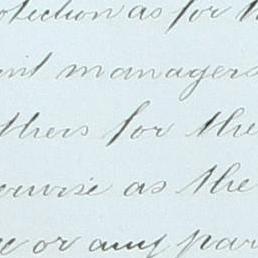 otection as for th
ent managers
thers for the
erwise as the
e or any par